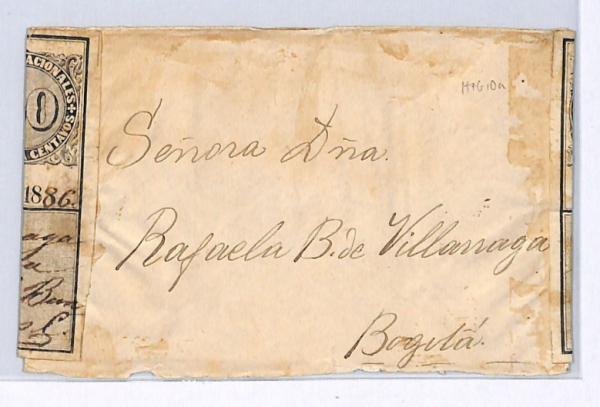 ACIONALES
0
CENTAVOS
1886.
aga
la
Señora Dña.
Rafaela B. de Villarraga
Bogotá.